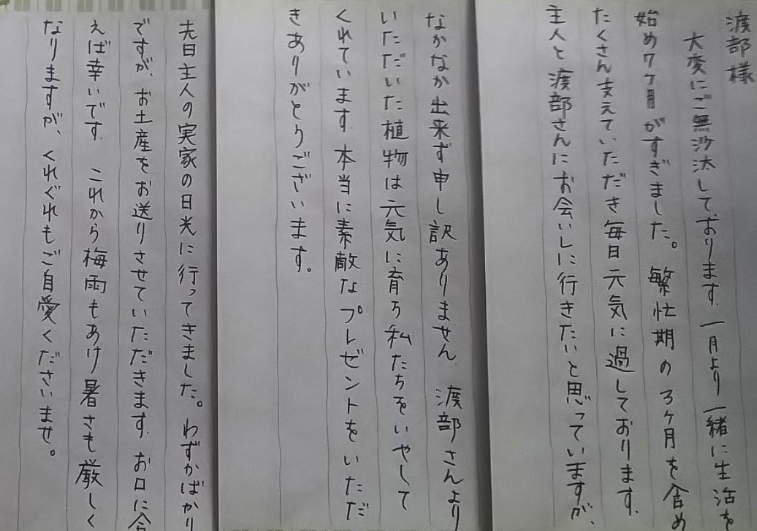 渡部様
大変にご無沙汰しております。一月より一緒に生活を
始め7ヶ月がすぎました。繁忙期の3ヶ月を含め
たくさん支えていただき毎日元気に過しております。
主人と渡部さんにお会いしに行きたいと思っていますが
なかなか出来ず申し訳ありません。渡部さんより
いただいた植物は元気に育ち私たちをいやして
くれています。本当に素敵なプレゼントをいただ
きありがとうございます。
先日主人の実家の日光に行ってきました。わずかばかり
ですが、お土産をお送りさせていただきます。お口に合
えば幸いです。これから梅雨もあけ暑さも厳しく
なりますが、くれぐれもご自愛くださいませ。